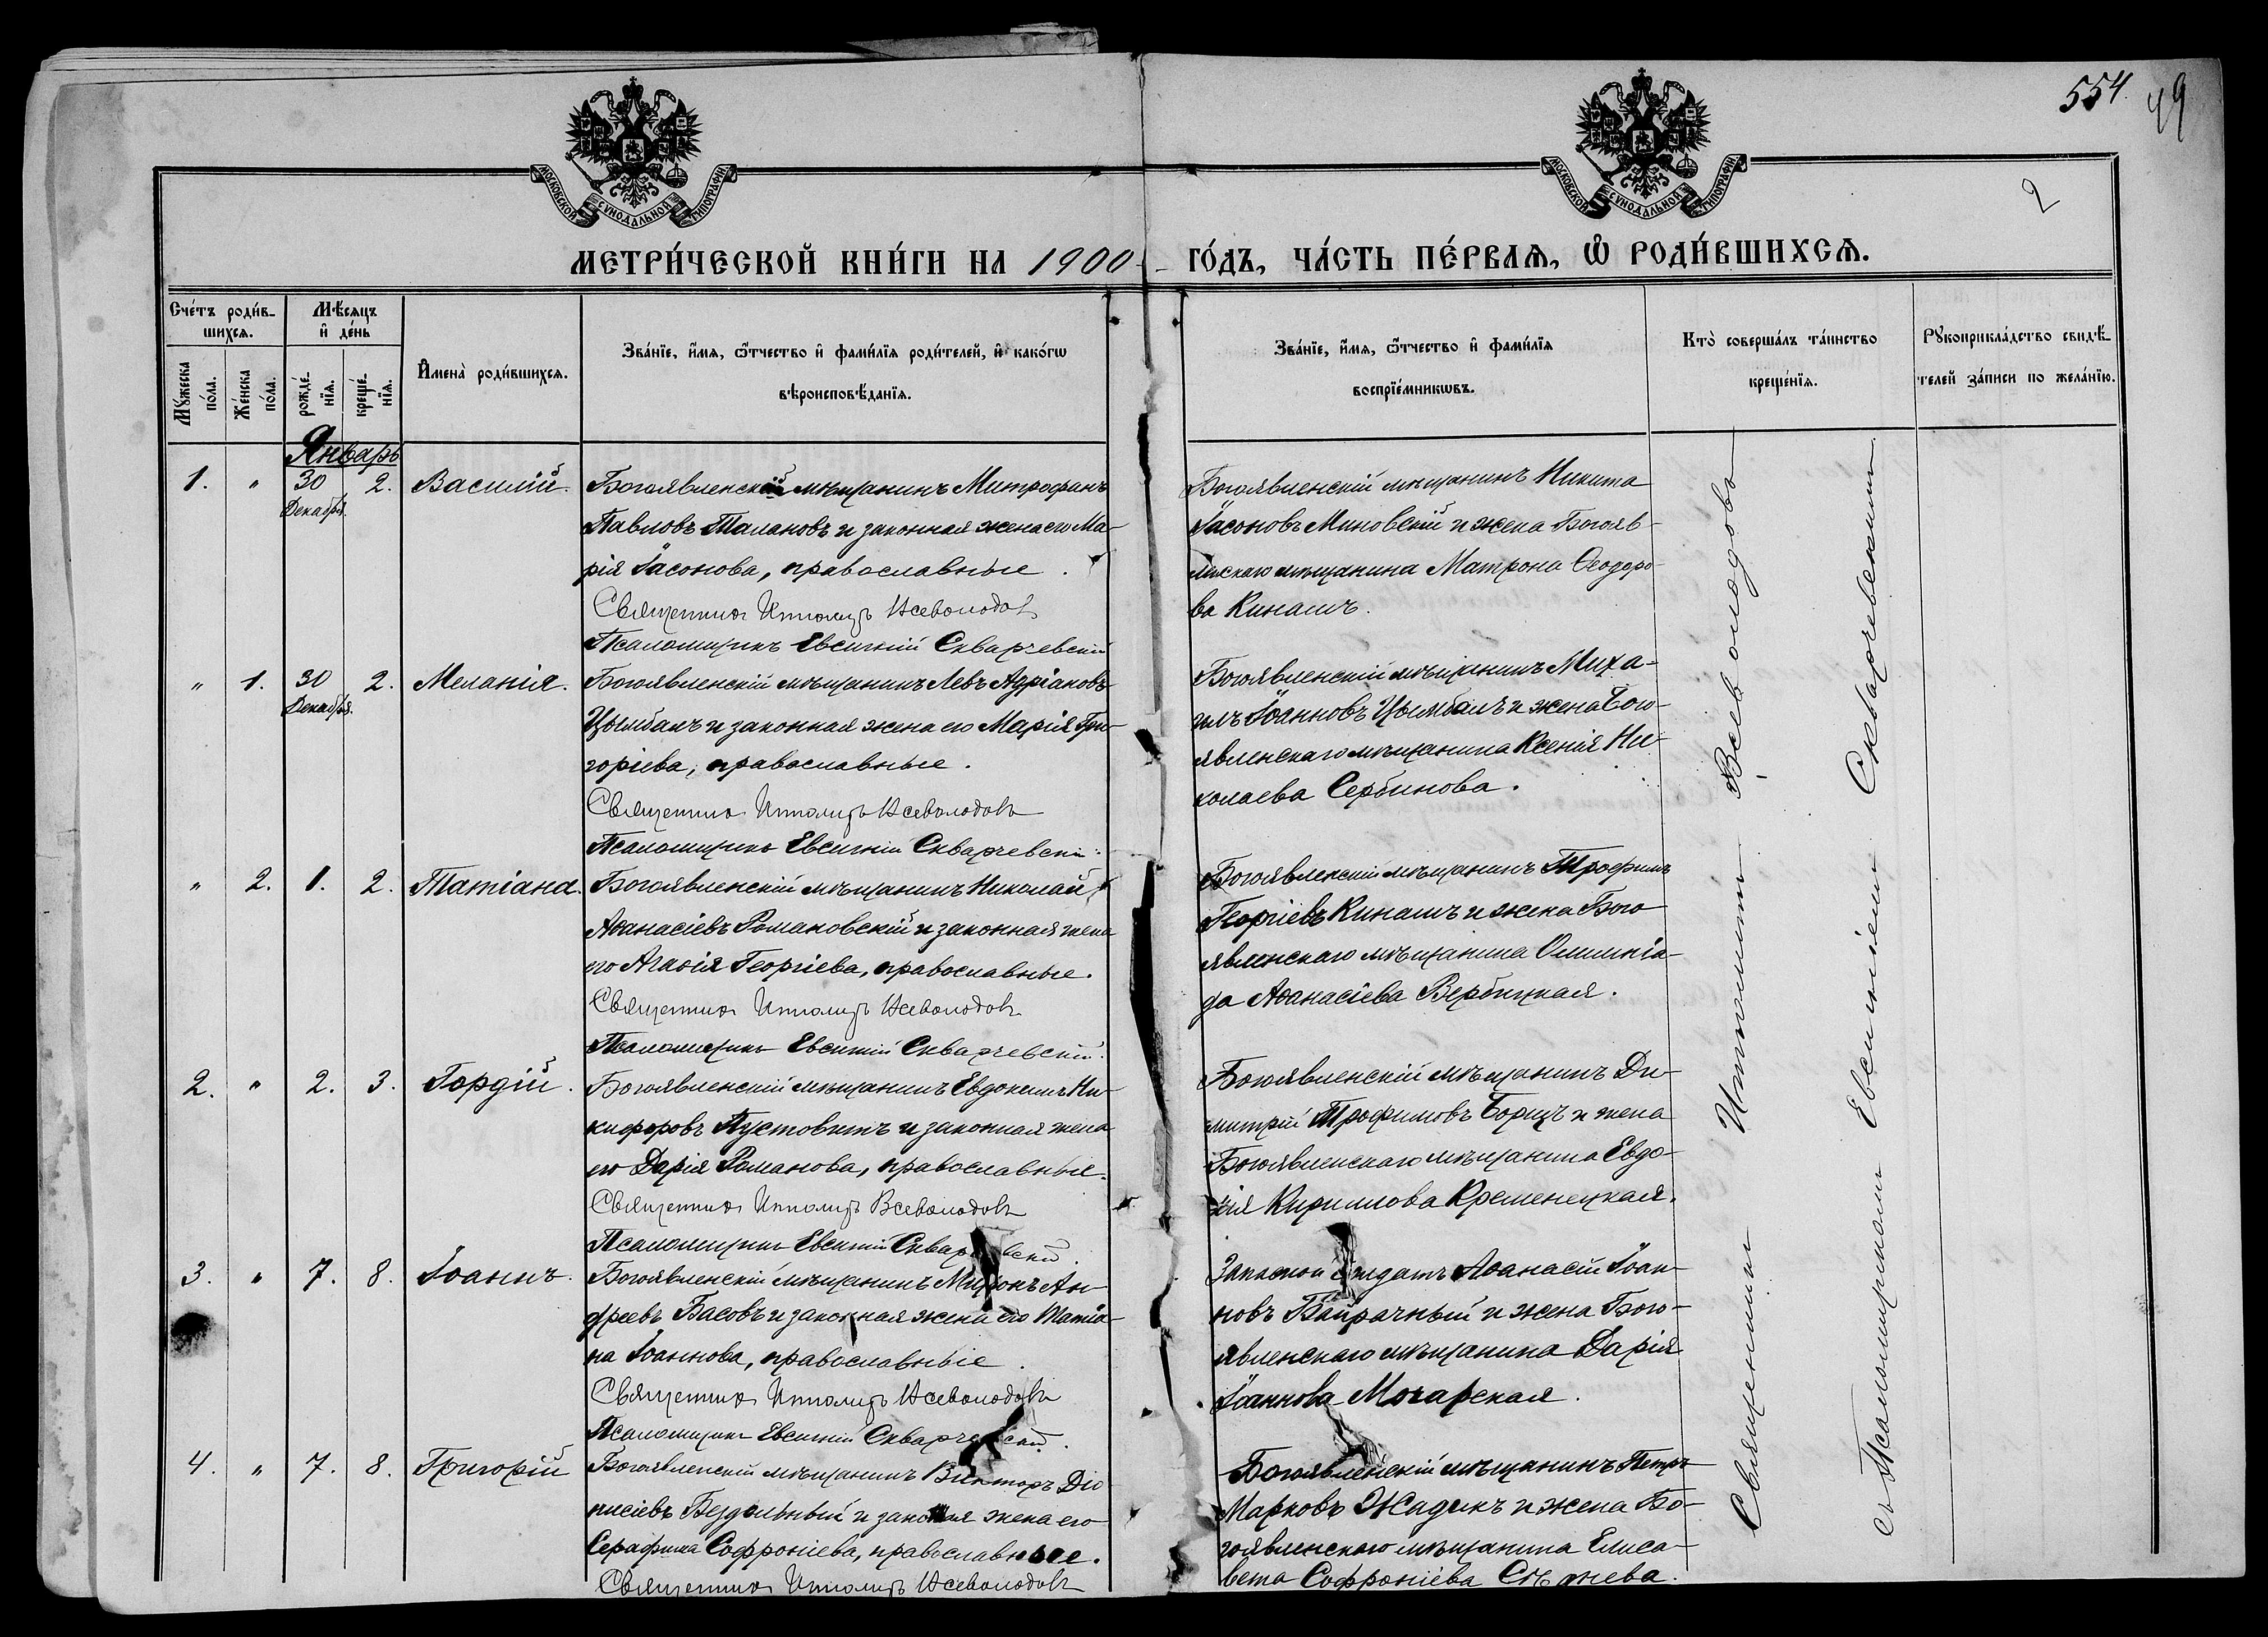 554.
49
2
МОСКОВСКОЙ СѴНОДАЛЬНОЙ ТИПОГРАФІИ
МОСКОВСКОЙ СѴНОДАЛЬНОЙ ТИПОГРАФІИ
МЕТРИ́ЧЕСКОЙ КНИ́ГИ НА 1900 ГО́ДЪ, ЧА́СТЬ ПЕ́РВАѦ, Ѡ҆ РОДИ́ВШИХСѦ.
Сче́тъ роди́в-
шихсѧ.
Мѣ́сѧцъ
и҆ де́нь
Мꙋ́жеска
по́ла.
Же́нска
по́ла.
рожде́-
нїѧ.
креще́-
нїѧ.
И҆мена̀ роди́вшихсѧ.
Зва́нїе, и҆́мѧ, ѻ҆́тчество и҆ фами́лїѧ роди́телей, и҆ како́гѡ
вѣроисповѣ́данїѧ.
Зва́нїе, и҆́мѧ, ѻ҆́тчество и҆ фами́лїѧ
воспрїе́мникѡвъ.
Кто̀ соверша́лъ та́инство
креще́нїѧ.
Рꙋкоприкла́дство свидѣ́-
телей за́писи по жела́нїю.
Январь
1. " 30 Декабря. 2. Василій.
Богоявленскій мѣщанинъ Митрофанъ
Павловъ Талановъ и законная жена его Ма-
рія Іасонова, православные.
Священникъ Ипполитъ Всеволодовъ
Псаломщикъ Евсигній Скварчевскій
Богоявленскій мѣщанинъ Никита
Іасоновъ Миновскій и жена Богояв-
ленскаго мѣщанина Матрона Ѳеодоро-
ва Кинашъ.
" 1. 30 Декабря. 2. Меланія.
Богоявленскій мѣщанинъ Левъ Адріановъ
Цымбалъ и законная жена его Марія Гри-
горіева, православные.
Священникъ Ипполитъ Всеволодовъ
Псаломщикъ Евсигній Скварчевскій
Богоявленскій мѣщанинъ Миха-
илъ Іоанновъ Цымбалъ и жена Бого-
явленскаго мѣщанина Ксенія Ни-
колаева Сербинова.
" 2. 1. 2. Татіана.
Богоявленскій мѣщанинъ Николай
Аѳанасіевъ Романовскій и законная жена
его Агаѳія Георгіева, православные.
Священникъ Ипполитъ Всеволодовъ
Псаломщикъ Евсигній Скварчевскій.
Богоявленскій мѣщанинъ Трофимъ
Георгіевъ Кинашъ и жена Бого
явленскаго мѣщанина Олимпіа-
да Аѳанасіева Вербицкая.
2. " 2. 3. Гордій.
Богоявленскій мѣщанинъ Евдокимъ Ни-
кифоровъ Пустовитъ и законная жена
его Дарія Романова, православные.
Священникъ Ипполитъ Всеволодовъ
Псаломщикъ Евсигній Скварчевскій.
Богоявленскій мѣщанинъ Ди-
митрій Трофимовъ Борщъ и жена
Богоявленскаго мѣщанина Евдо-
кія Кириллова Кременецкая.
3. " 7. 8. Іоаннъ.
Богоявленскій мѣщанинъ Миронъ Ан-
дреевъ Басовъ и законная жена его Татіа-
на Іоаннова, православные.
Священникъ Ипполитъ Всеволодовъ
Псаломщикъ Евсигній Скварчевскій.
Запасной солдатъ Аѳанасій Іоан-
новъ Байрачный и жена Бого-
явленскаго мѣщанина Дарія
Іоаннова Мочарская.
4. " 7. 8. Григорій
Богоявленскій мѣщанинъ Викторъ Діо-
нисіевъ Бездольный и законная жена его
Серафима Софроніева, православные.
Священникъ Ипполитъ Всеволодовъ
Богоявленскій мѣщанинъ Петръ
Марковъ Жадикъ и жена Бо-
гоявленскаго мѣщанина Елиса-
вета Софроніева
Священникъ Ипполитъ Всеволодовъ
съ Псаломщикомъ Евсигніемъ Скварчевскимъ